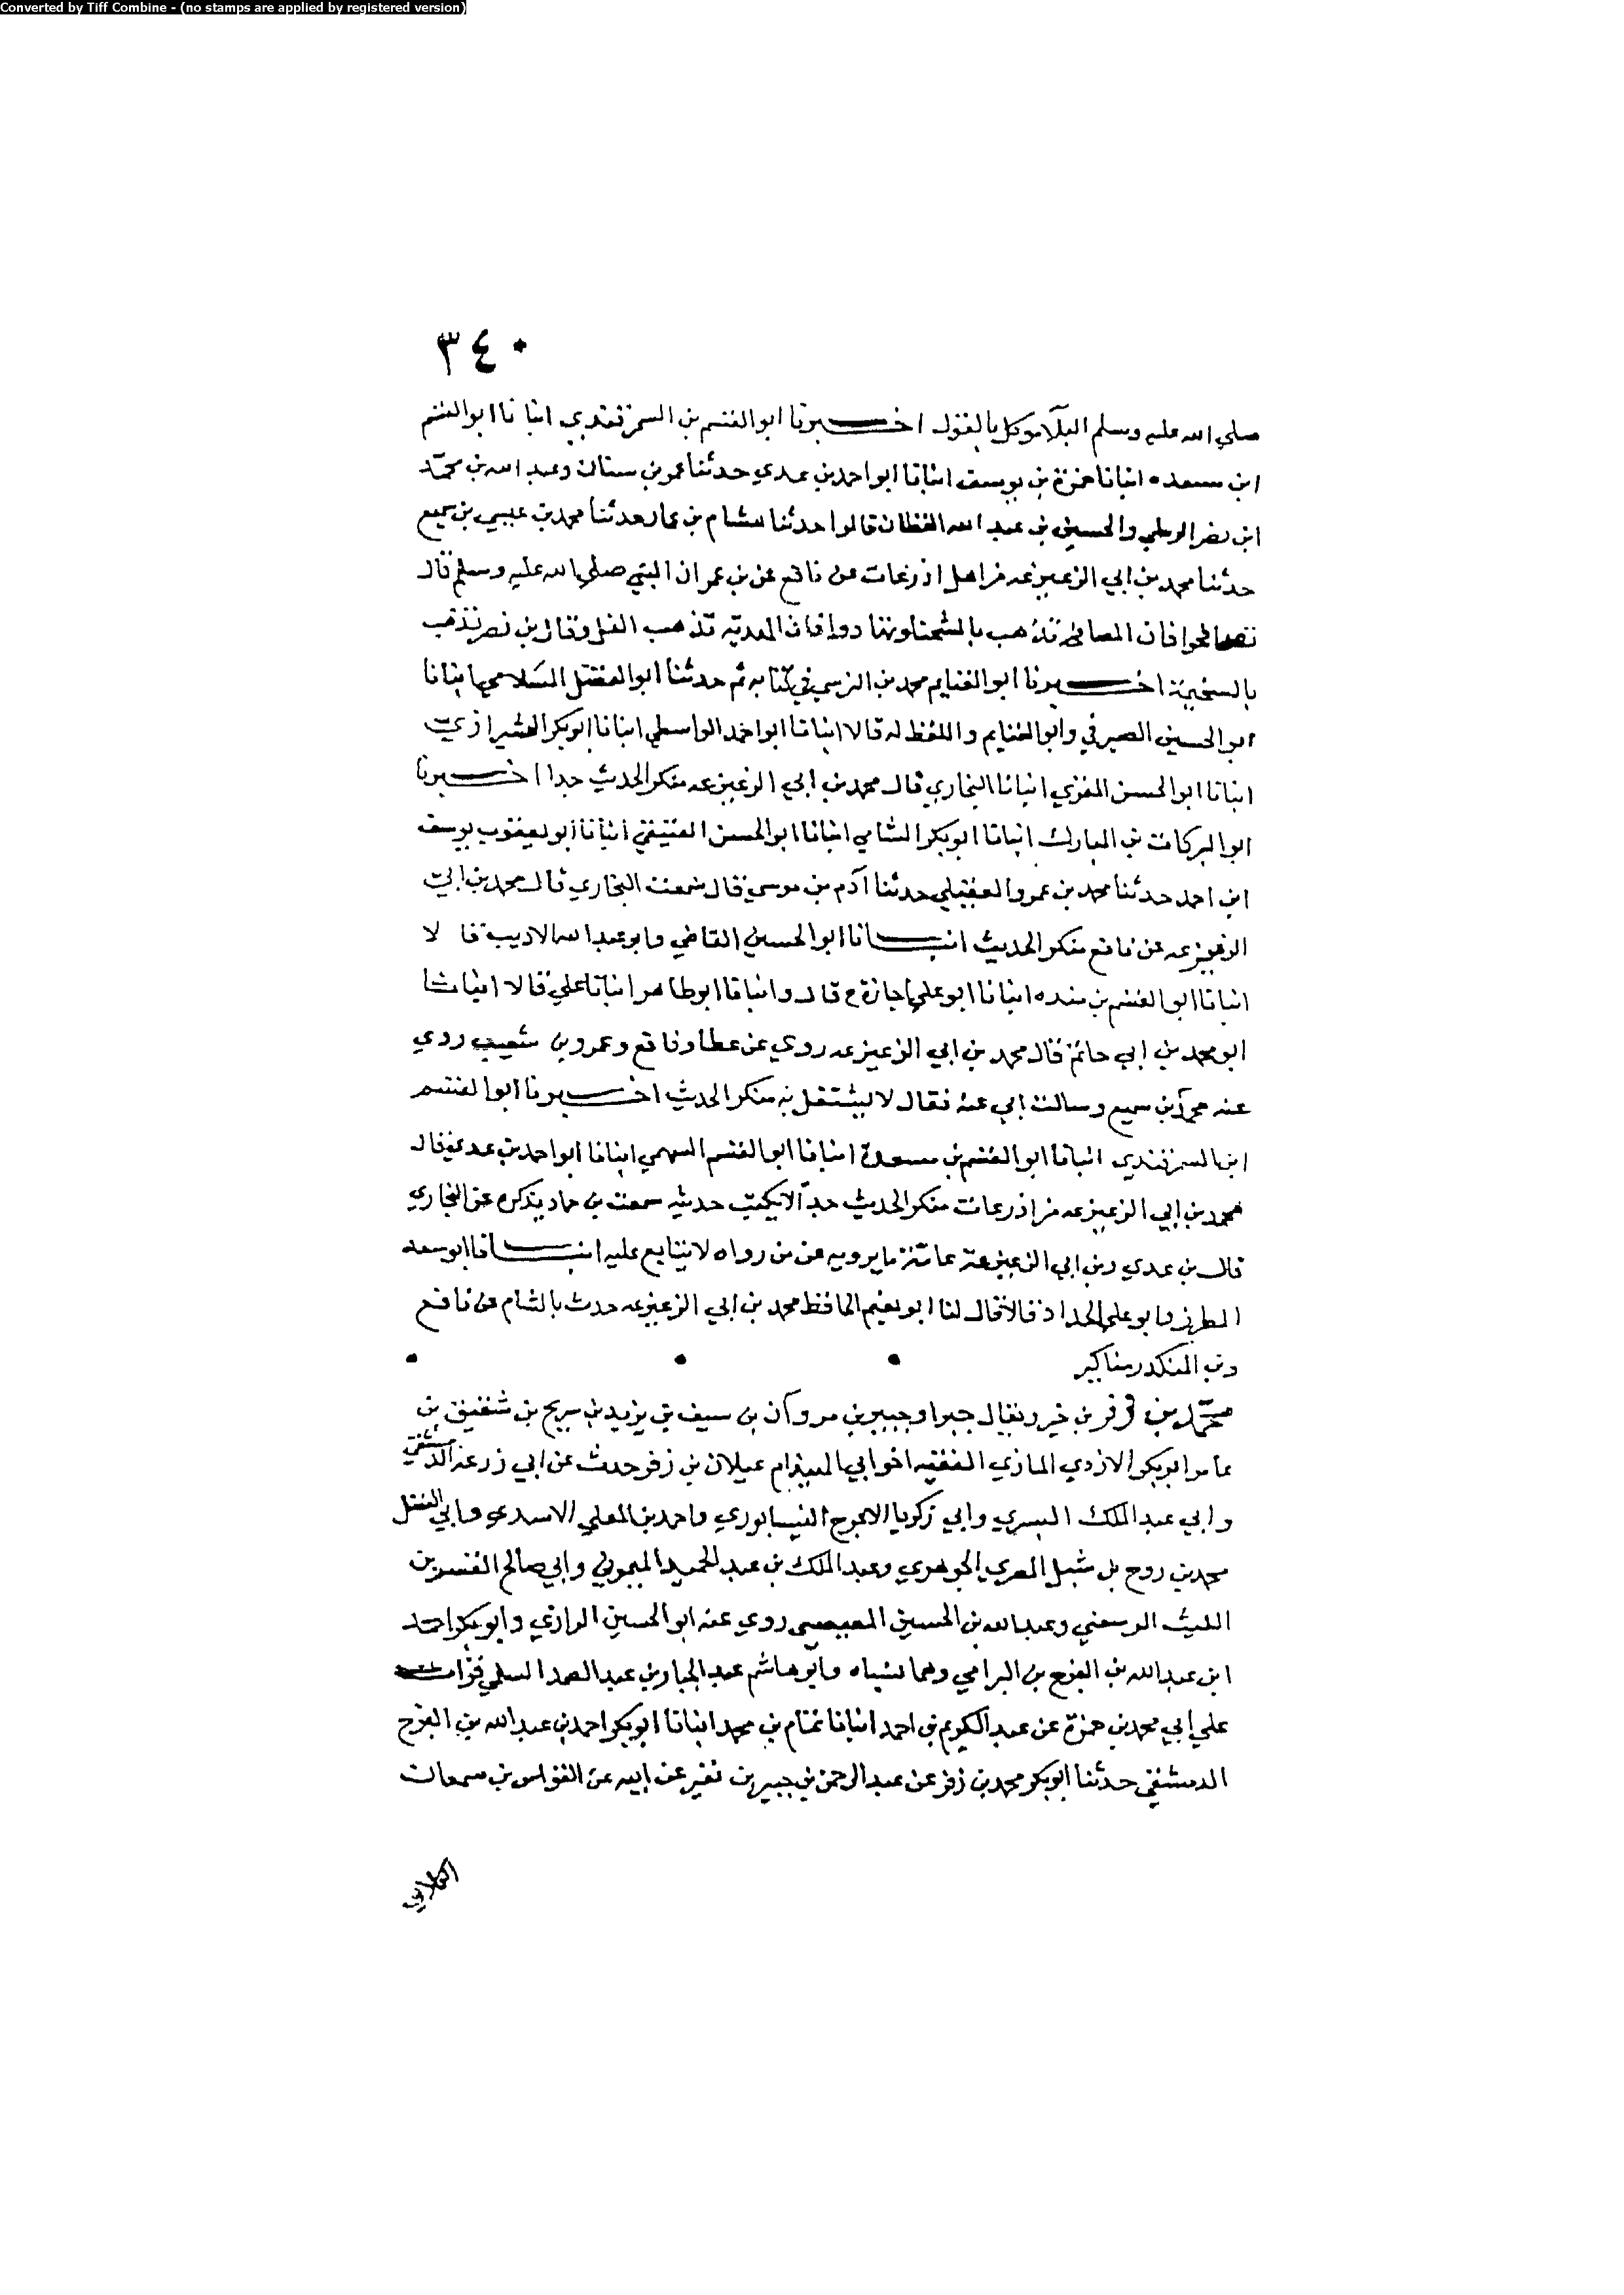 Converted by Tiff Combine - (no stamps are applied by registered version)
٣٤٠
صلي الله عليه وسلم البلآموكل بالقول اخبرنا ابو القسم بن السمرقندي انبانا ابو القسم
ابن مسعده انبانا حمزة بن يوسف انبانا ابو احمد بن عدي حدثنا عمر بن سنان وعبد الله بن محمد
ابن نصر الرملي والحسين بن عبد الله القطان قالوا حدثنا هشام بن عمار حدثنا محمد بن عيسي بن سميع
حدثنا محمد بن ابي الزعيزعه من اهل اذرعات عن نافع عن بن عمر ان النبي صلي الله عليه وسلم قال
تصافحوا فان المصافحه تذهب بالشحنا وتهادوا فان الهدية تذهب الغل وقال بن نصر تذهب
بالسخيمة اخبرنا ابو الغنايم محمد بن النرسي في كتابه ثم حدثنا ابو الفضل السلامي انبانا
ابو الحسين الصيرفي وابو الغنايم واللفظ له قالا انبانا ابو احمد الواسطي انبانا ابو بكر الشيرازي
انبانا ابو الحسن المقري انبانا البخاري قال محمد بن ابي الزعيزعه منكر الحديث جدا اخبرنا
ابو البركات بن المبارك انبانا ابو بكر الشامي انبانا ابو الحسن العتيقي انبانا ابو يعقوب يوسف
ابن احمد حدثنا محمد بن عمرو العقيلي حدثنا آدم بن موسي قال سمعت البخاري قال محمد بن ابي
الزعيزعه عن نافع منكر الحديث انبانا ابو الحسين القاضي وابو عبد الله الاديب قا لا
انبانا ابو القسم بن منده انبانا ابو علي اجازة ح قال وانبانا ابو طاهر انبانا علي قالا انبانا
ابو محمد بن ابي حاتم قال محمد بن ابي الزعيزعه روي عن عطا ونافع وعمرو بن شعيب روي
عنه محمد بن سميع وسالت ابي عنه فقال لا يشتغل به منكر الحديث اخبرنا ابو القسم
ابن السمرقندي انبانا ابو القسم بن مسعدة انبانا ابو القسم السهمي انبانا ابو احمد بن عدي قال
محمد بن ابي الزعيزعه من اذرعات منكر الحديث جدآ لا يكتب حديثه سمعت بن حماد يذكره عن البخاري
قال بن عدي وبن ابي الزعيزعة عامة ما يرويه عن من رواه لا يتابع عليه انبانا ابو سعد
المطرز وابو علي الحداد قالا قال لنا ابو نعيم الحافظ محمد بن ابي الزعيزعه حدث بالشام عن نافع
وبن المنكدر مناكير
محمد بن زفر بن خير ويقال جبر وجبير بن مروآن بن سيف بن يزيد بن سريج بن شقيق بن
عامر ابو بكر الازدي المازني الفقيه اخو ابي الهيذام عيلان بن زفر حدث عن ابي زرعه الدمشقي
وابي عبد الملك البسري وابي زكريا الاعرج النيسابوري واحمد بن المعلي الاسدي وابي الفضل
محمد بن روح بن شبل المصري الجوهري وعبد الملك بن عبد الحميد الميموني وابي صالح القسم بن
الليث الرسعني وعبد الله بن الحسين المصيصي روي عنه ابو الحسين الرازي وابو بكر احمد
ابن عبد الله بن الفرج بن البرامي وهما نسباه وابو هاشم عبد الجبار بن عبد الصمد السلمي قرات
علي ابي محمد بن حمزة عن عبد الكريم بن احمد انبانا تمام بن محمد انبانا ابو بكر احمد بن عبد الله بن الفرج
الدمشقي حدثنا ابو بكر محمد بن زفر عن عبد الرحمن بن جبير بن نفير عن ابيه عن النواس بن سمعان
الكلابي